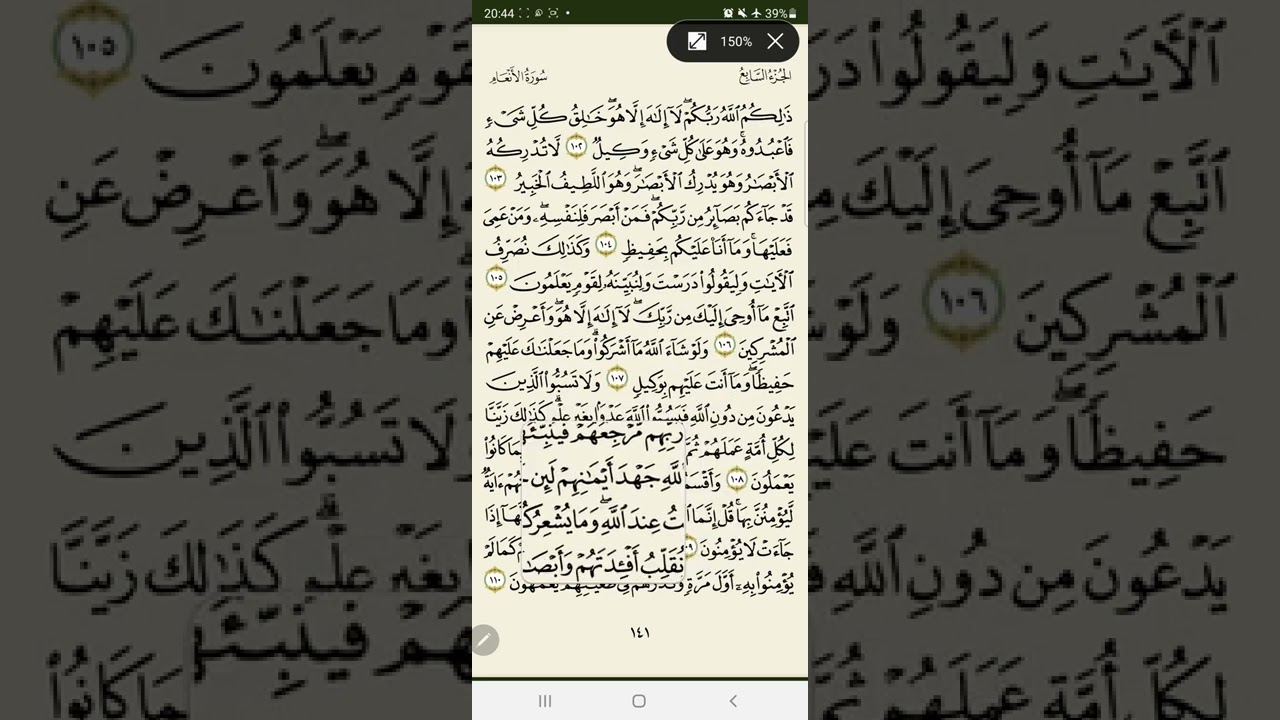 20:44
39%
150%
الجزء السابع
سورة الأنعام
ذَٰلِكُمُ ٱللَّهُ رَبُّكُمْ ۖ لَآ إِلَٰهَ إِلَّا هُوَ ۖ خَٰلِقُ كُلِّ شَىْءٍ
فَٱعْبُدُوهُ ۚ وَهُوَ عَلَىٰ كُلِّ شَىْءٍ وَكِيلٌ ١٠٢ لَّا تُدْرِكُهُ
ٱلْأَبْصَٰرُ وَهُوَ يُدْرِكُ ٱلْأَبْصَٰرَ ۖ وَهُوَ ٱللَّطِيفُ ٱلْخَبِيرُ ١٠٣
قَدْ جَآءَكُم بَصَآئِرُ مِن رَّبِّكُمْ ۖ فَمَنْ أَبْصَرَ فَلِنَفْسِهِۦ ۖ وَمَنْ عَمِىَ
فَعَلَيْهَا ۚ وَمَآ أَنَا۠ عَلَيْكُم بِحَفِيظٍ ١٠٤ وَكَذَٰلِكَ نُصَرِّفُ
ٱلْأَيَٰتِ وَلِيَقُولُوا۟ دَرَسْتَ وَلِنُبَيِّنَهُۥ لِقَوْمٍ يَعْلَمُونَ ١٠٥
ٱتَّبِعْ مَآ أُوحِىَ إِلَيْكَ مِن رَّبِّكَ ۖ لَآ إِلَٰهَ إِلَّا هُوَ ۖ وَأَعْرِضْ عَنِ
ٱلْمُشْرِكِينَ ١٠٦ وَلَوْ شَآءَ ٱللَّهُ مَآ أَشْرَكُوا۟ ۗ وَمَا جَعَلْنَٰكَ عَلَيْهِمْ
حَفِيظًا ۖ وَمَآ أَنتَ عَلَيْهِم بِوَكِيلٍ ١٠٧ وَلَا تَسُبُّوا۟ ٱلَّذِينَ
يَدْعُونَ مِن دُونِ ٱللَّهِ فَيَسُبُّوا۟ ٱللَّهَ عَدْوًۢا بِغَيْرِ عِلْمٍ ۗ كَذَٰلِكَ زَيَّنَّا
لِكُلِّ أُمَّةٍ عَمَلَهُمْ ثُمَّ
رَبِّهِم مَّرْجِعُهُمْ فَيُنَبِّئُهُم
كَانُوا۟
يَعْمَلُونَ ١٠٨
ٱللَّهِ جَهْدَ أَيْمَٰنِهِمْ لَئِن
ءَايَةٌ
لَّيُؤْمِنُنَّ بِهَا ۚ قُلْ إِنَّمَا
عِندَ ٱللَّهِ ۖ وَمَا يُشْعِرُكُمْ
إِذَا
جَآءَتْ لَا يُؤْمِنُونَ
نُقَلِّبُ أَفْـِٔدَتَهُمْ وَأَبْصَٰ
كَمَا لَمْ
يُؤْمِنُوا۟ بِهِۦٓ أَوَّلَ مَرَّةٍ وَنَذَرُهُمْ فِى طُغْيَٰنِهِمْ يَعْمَهُونَ ١١٠
١٤١